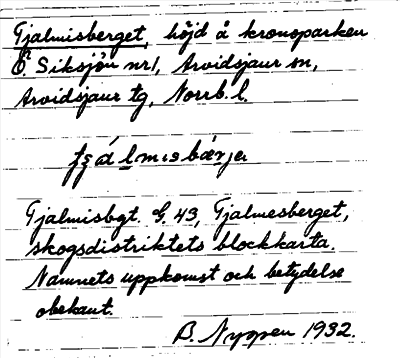 Tjalmisberget, höjd å kronoparken
Ö. Siksjön nr1, Arvidsjaur sn,
Arvidsjaur tg, Norrb. l.
Tjalmisbgt. G. 43, Tjalmesberget,
skogsdistriktets blockkarta.
Namnets uppkomst och betydelse
obekant.
B. Nyqpen 1932.